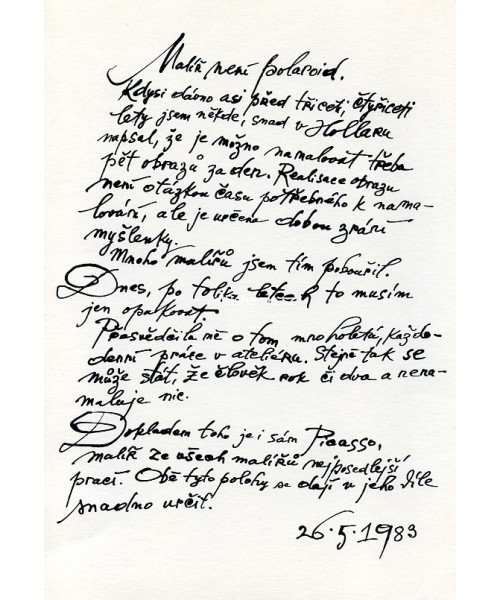 Malíř není polaroid.
Kdysi dávno asi před třiceti, čtyřiceti
lety jsem někde, snad v Hollaru
napsal, že je možno namalovat třeba
pět obrazů za den. Realisace obrazu
není otázkou času potřebného k nama-
lování, ale je určena dobou zrání
myšlenky.
Mnoho malířů jsem tím pobouřil.
Dnes, po tolika letech to musím
jen opakovat.
Přesvědčila mě o tom mnoholetá, každo-
denní práce v atelieru. Stejně tak se
může stát, že člověk rok či dva a nena-
maluje nic.
Dokladem toho je i sám Picasso,
malíř ze všech malířů nejposedlejší
prací. Obě tyto polohy se dají v jeho díle
snadno určit.
26.5.1983